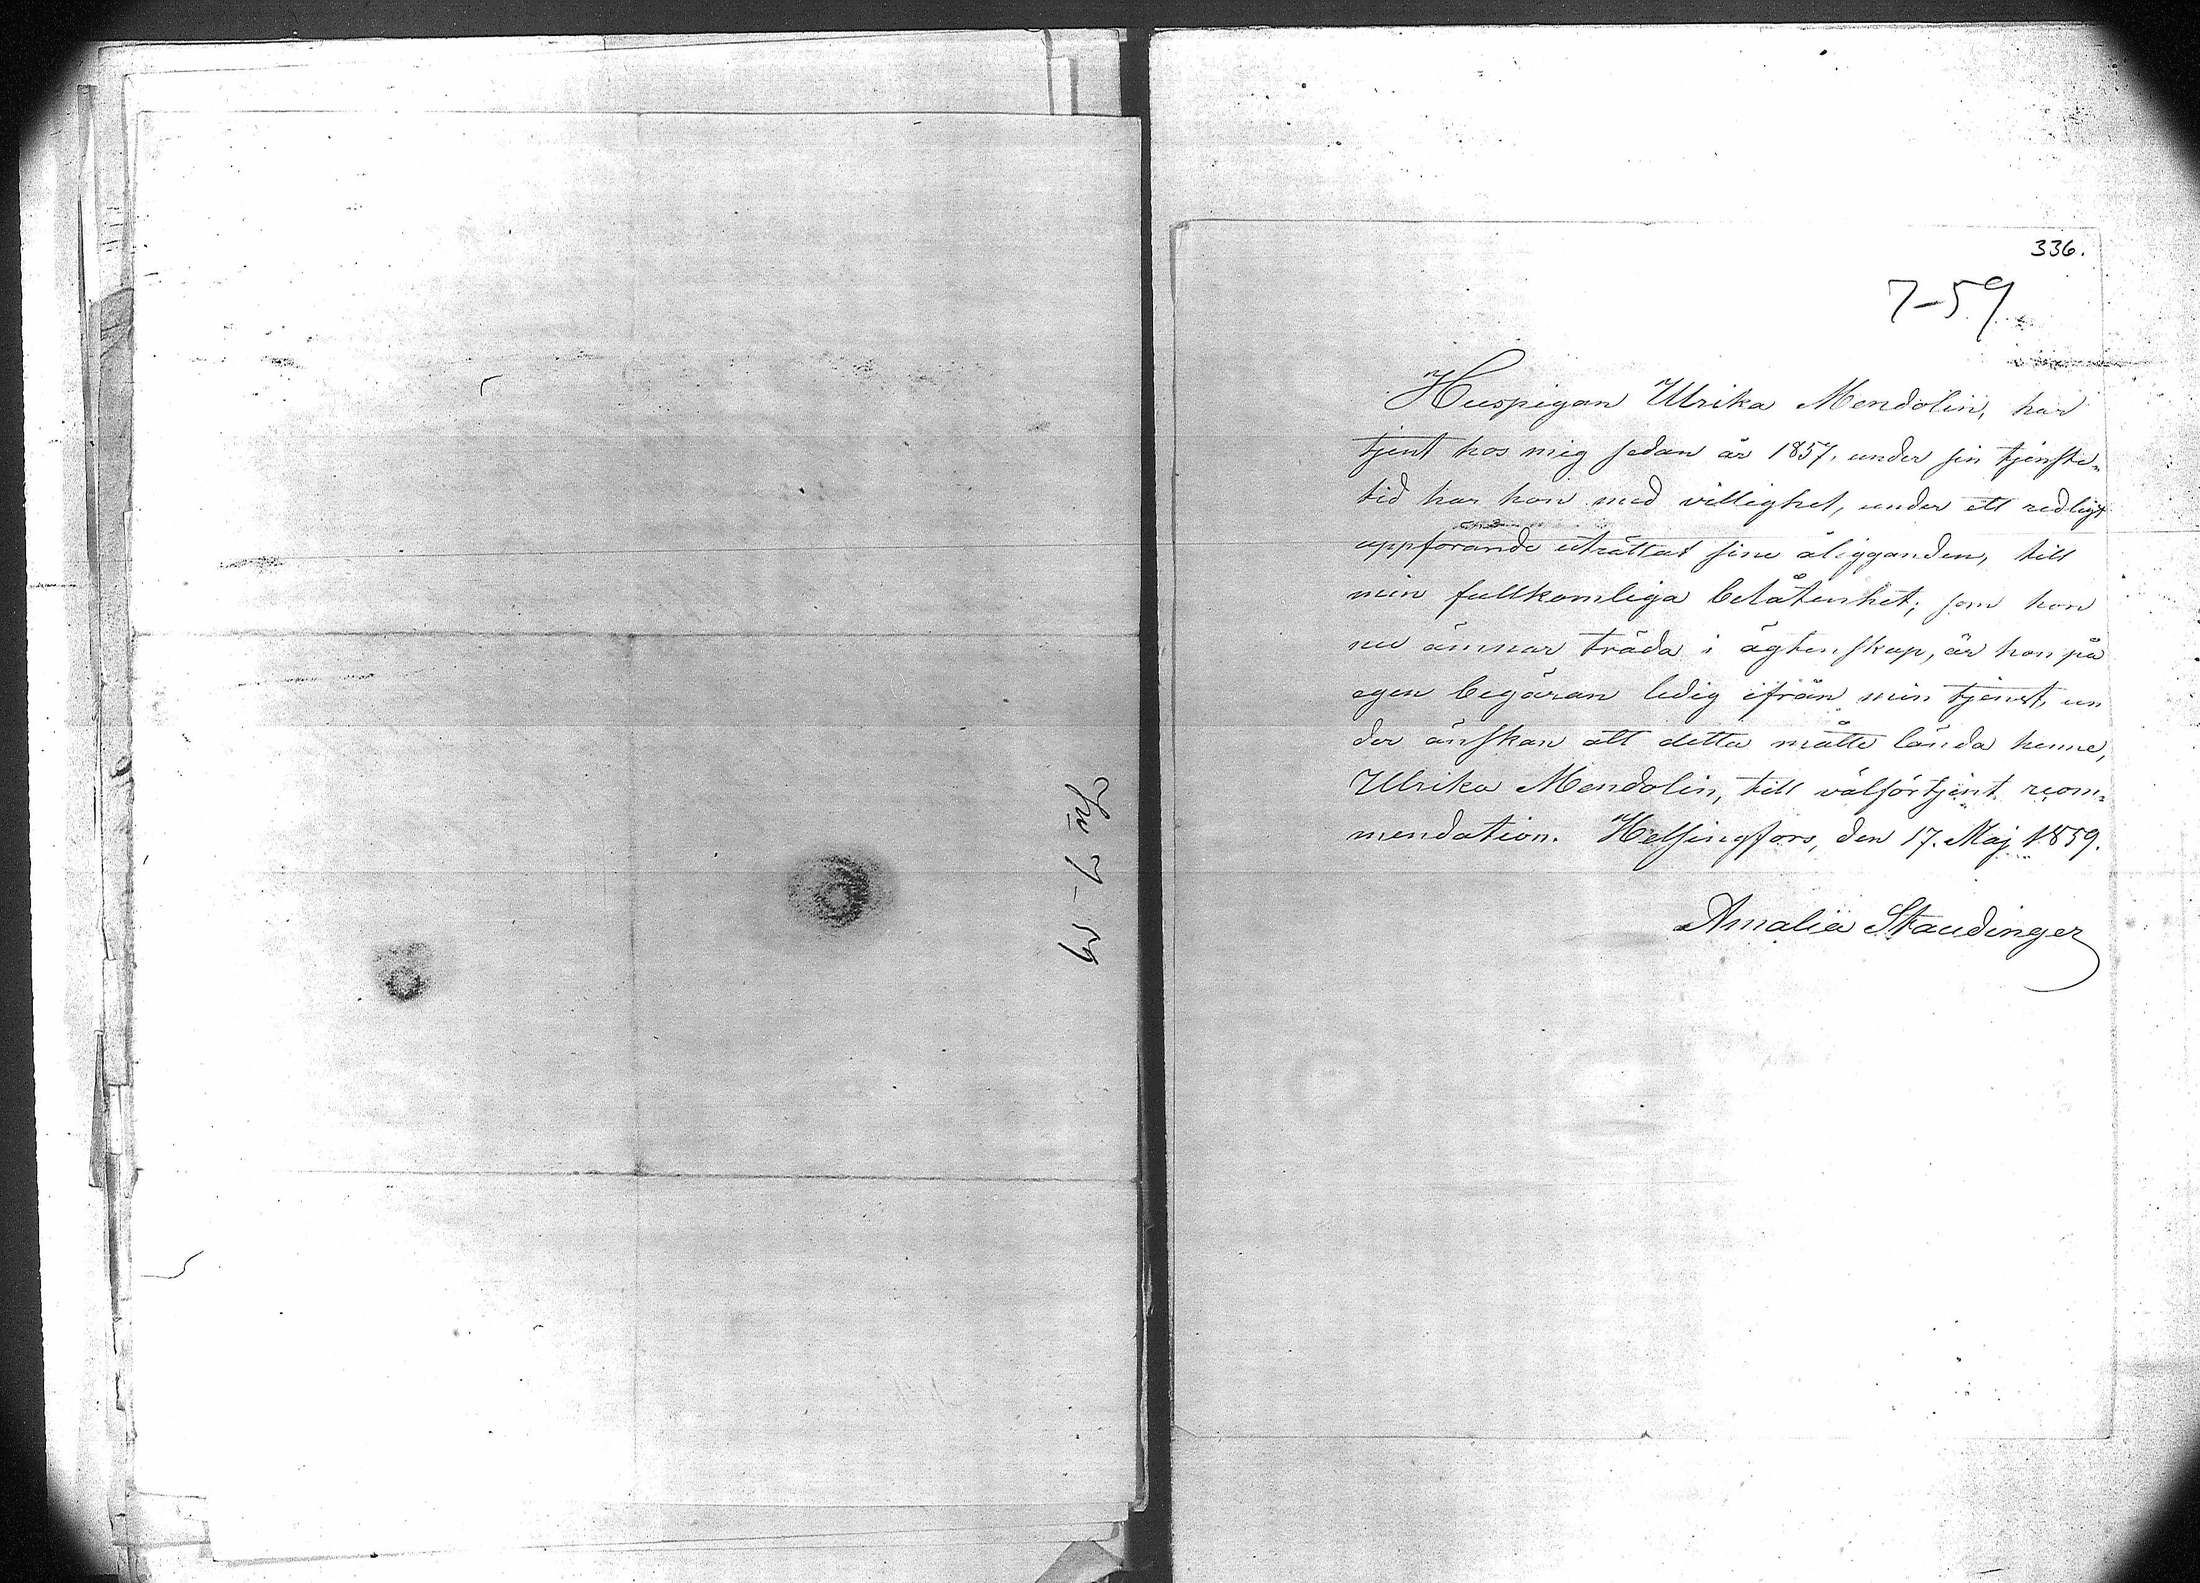 7-59
336.
7-59
Huspigan Ulrika Mendolin, har
tjent hos mig sedan år 1857, under sin tjenste-
tid har hon med villighet, under ett redligt
uppförande uträttat sine åligganden, till
min fullkomliga belåtenhet; som hon
nu ämnar träda i ägtenskap, är hon på
egen begäran ledig ifrån min tjenst, un
der önskan att detta måtte lända henne,
Ulrika Mendolin, till välförtjent recom-
mendation. Helsingfors, den 17. Maj 1859.
Amalia Staudinger